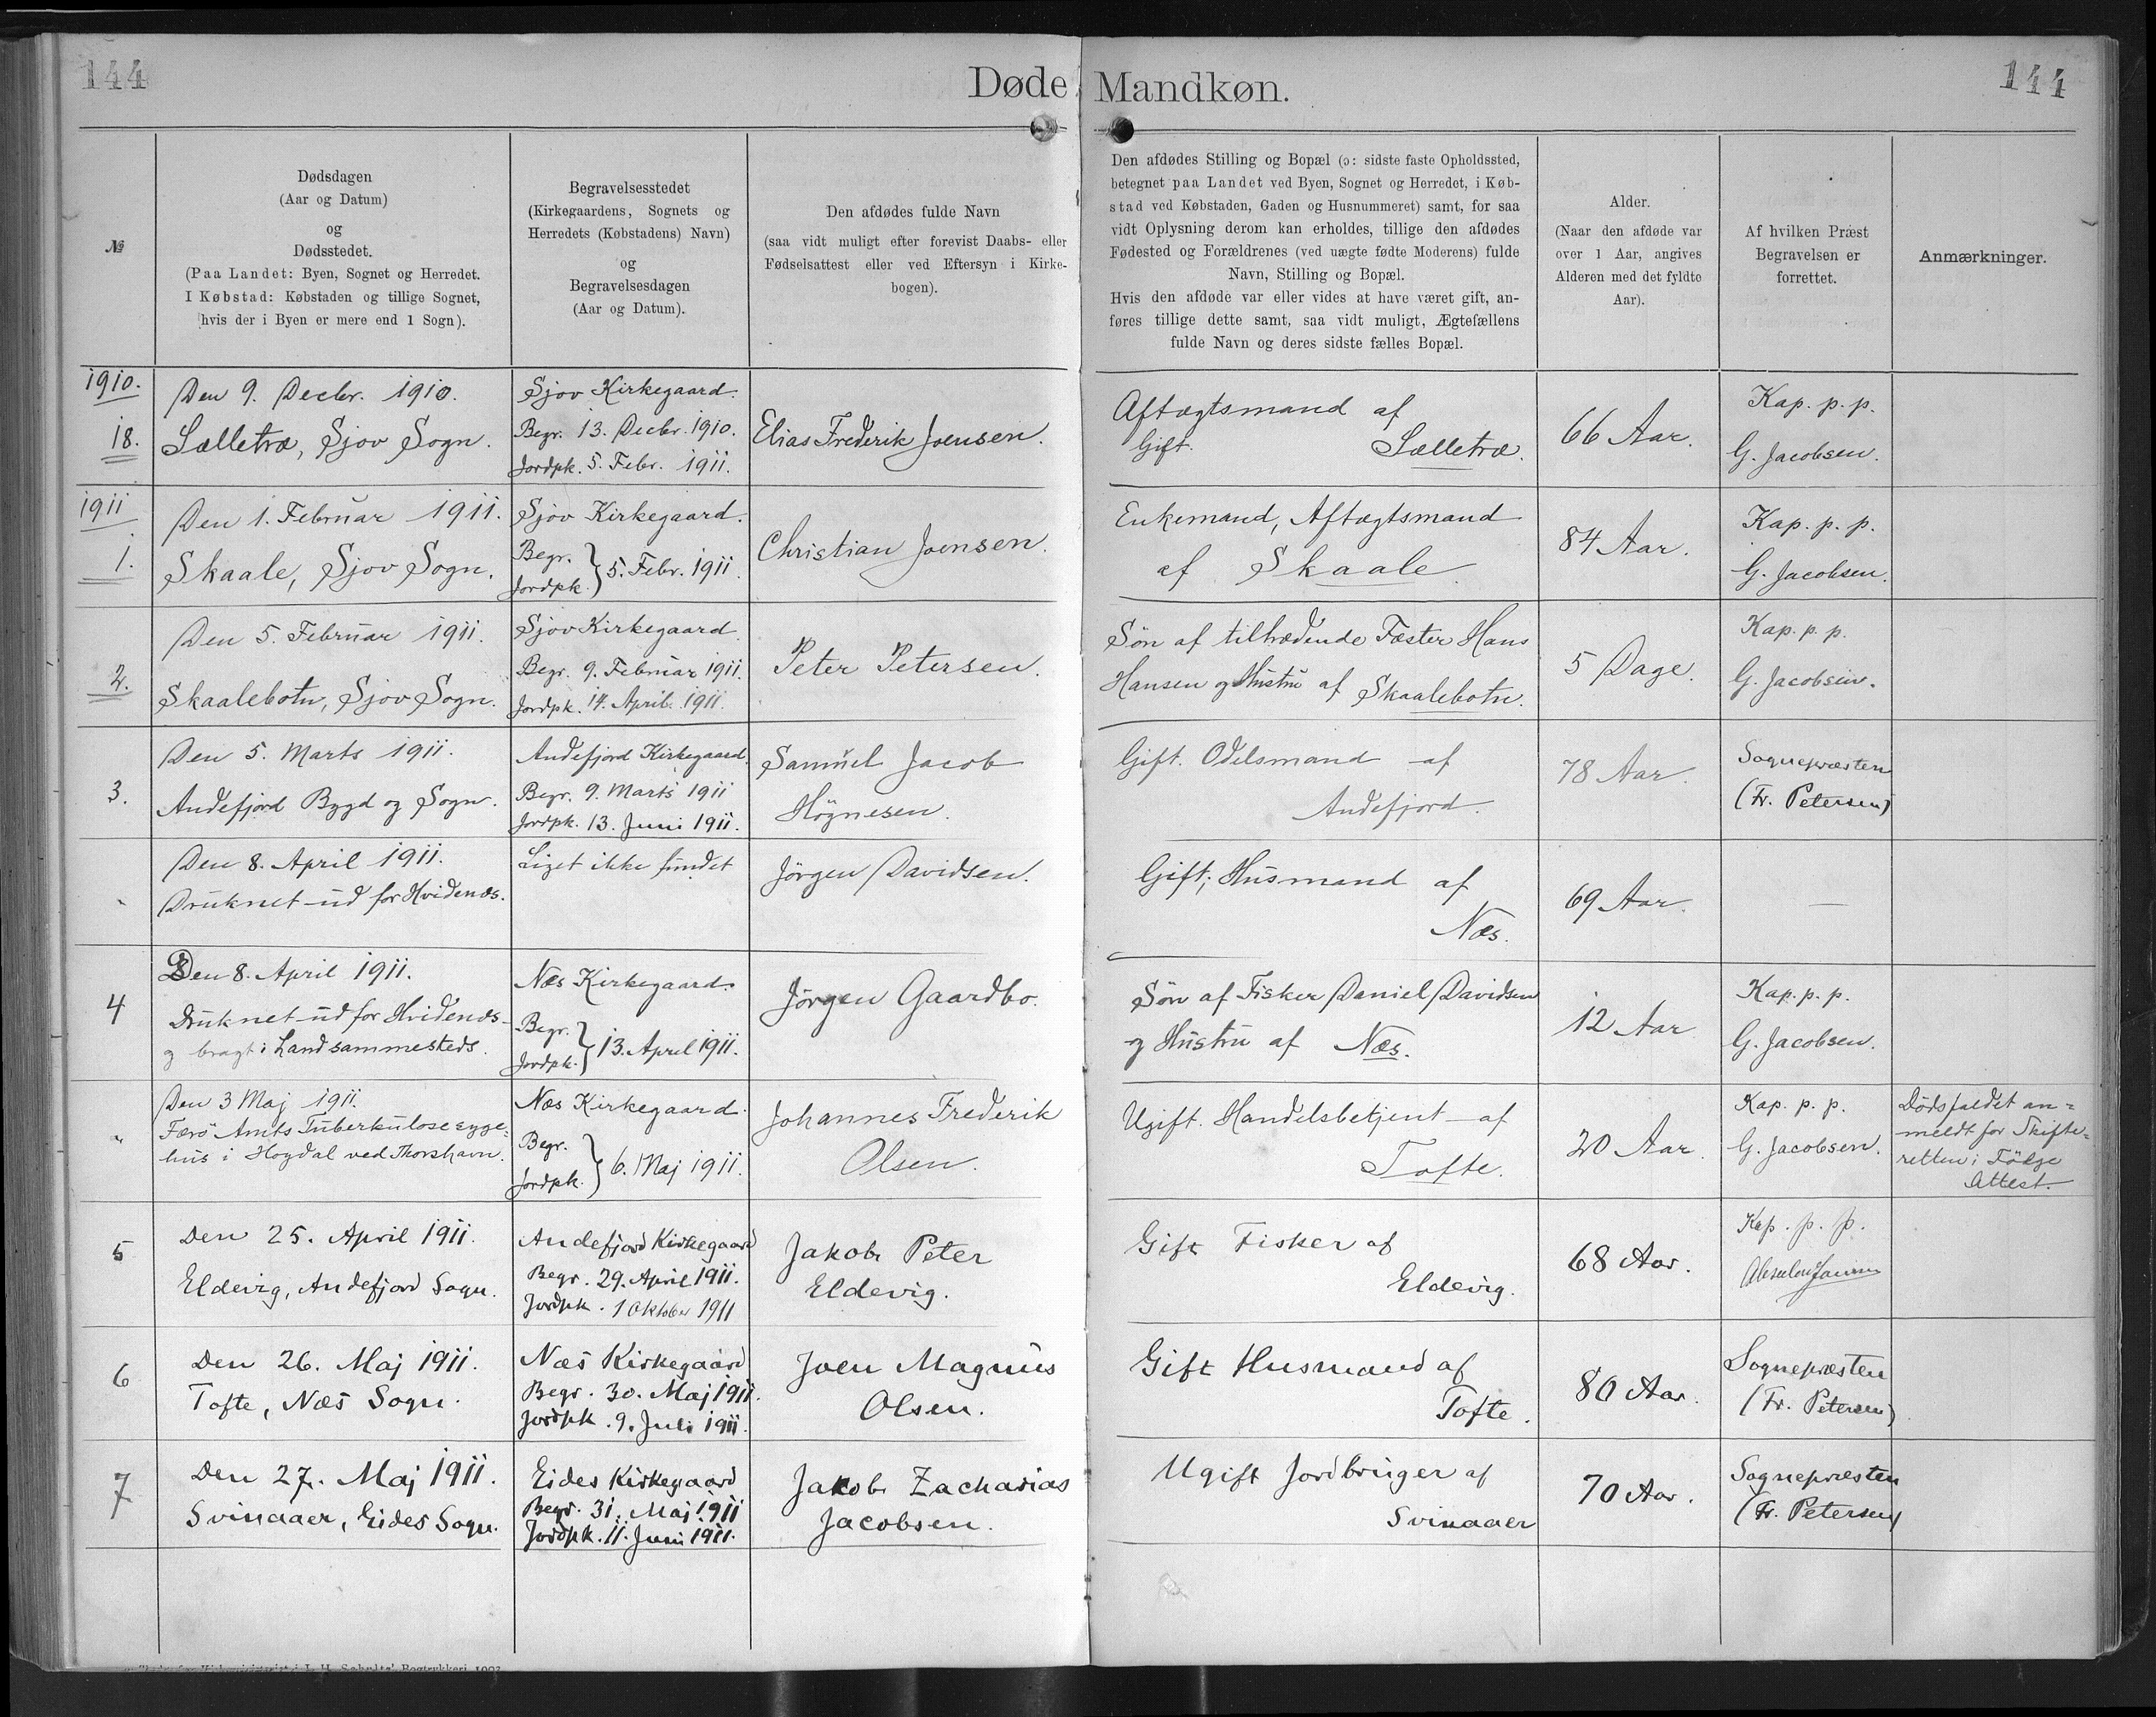 144
Døde Mandkøn.
144
№
Dødsdagen
(Aar og Datum)
og
Dødsstedet.
(Paa Landet: Byen, Sognet og Herredet.
I Købstad: Købstaden og tillige Sognet,
hvis der i Byen er mere end 1 Sogn).
Begravelsesstedet
(Kirkegaardens, Sognets og
Herredets (Købstadens) Navn)
og
Begravelsesdagen
(Aar og Datum).
Den afdødes fulde Navn
(saa vidt muligt efter forevist Daabs- eller
Fødselsattest eller ved Eftersyn i Kirke-
bogen).
Den afdødes Stilling og Bopæl (ɔ: sidste faste Opholdssted,
betegnet paa Landet ved Byen, Sognet og Herredet, i Køb-
stad ved Købstaden, Gaden og Husnummeret) samt, for saa
vidt Oplysning derom kan erholdes, tillige den afdødes
Fødested og Forældrenes (ved uægte fødte Moderens) fulde
Navn, Stilling og Bopæl.
Hvis den afdøde var eller vides at have været gift, an-
føres tillige dette samt, saa vidt muligt, Ægtefællens
fulde Navn og deres sidste fælles Bopæl.
Alder.
(Naar den afdøde var
over 1 Aar, angives
Alderen med det fyldte
Aar).
Af hvilken Præst
Begravelsen er
forrettet.
Anmærkninger.
1910.
18.
Den 9. Decbr. 1910.
Sælletræ, Sjov Sogn.
Sjov Kirkegaard.
Begr. 13. Decbr. 1910.
Jordpk. 5. Febr. 1911.
Elias Frederik Joensen.
Aftægtsmand af
Gift. Sælletræ.
66 Aar.
Kap. p. p.
G. Jacobsen.
1911
1.
Den 1. Februar 1911.
Skaale, Sjov Sogn.
Sjov Kirkegaard.
Begr.
Jordpk. } 5. Febr. 1911.
Christian Joensen.
Enkemand, Aftægtsmand
af Skaale
84 Aar.
Kap. p. p.
G. Jacobsen.
2.
Den 5. Februar 1911.
Skaalebotn, Sjov Sogn.
Sjov Kirkegaard.
Begr. 9. Februar 1911.
Jordpk. 14. April 1911.
Peter Petersen.
Søn af tiltrædende Fæster Hans
Hansen og Hustru af Skaalebotn.
5 Dage.
Kap. p. p.
G. Jacobsen.
3.
Den 5. Marts 1911.
Andefjord Bygd og Sogn.
Andefjord Kirkegaard.
Begr. 9. Marts 1911
Jordpk. 13. Juni 1911.
Samuel Jacob
Högnesen.
Gift. Odelsmand af
Andefjord.
78 Aar.
Sognepræsten
(Fr. Petersen)
Den 8. April 1911.
Druknet ud for Hvidenæs.
Liget ikke fundet
Jörgen Davidsen.
Gift; Husmand af
Næs.
69 Aar.
—
4
Den 8. April 1911.
Druknet ud for Hvidenæs
og bragt i Land sammesteds.
Næs Kirkegaard.
Begr.
Jordpk. } 13. April 1911.
Jörgen Gaardbo.
Søn af Fisker Daniel Davidsen
og Hustru af Næs.
12 Aar
Kap. p. p.
G. Jacobsen.
"
Den 3 Maj 1911.
Færö Amts Tuberkulosesyge-
hus i Hoydal ved Thorshavn.
Næs Kirkegaard.
Begr.
Jordpk. } 6. Maj 1911.
Johannes Frederik
Olsen.
Ugift. Handelsbetjent af
Tofte.
20 Aar.
Kap. p. p.
G. Jacobsen.
Dödsfaldet an=
meldt for Skifte=
retten i Fölge
Attest.
5
Den 25. April 1911.
Eldevig, Andefjord Sogn.
Andefjord Kirkegaard
Begr. 29. April 1911.
Jordpk. 1 Oktober 1911
Jakob Peter
Eldevig.
Gift Fisker af
Eldevig.
68 Aar.
Kap. p. p.
6
Den 26. Maj 1911.
Tofte, Næs Sogn.
Næs Kirkegaard
Begr. 30. Maj 1911.
Jordpk. 9. Juli 1911.
Joen Magnus
Olsen.
Gift Husmand af
Tofte.
80 Aar.
Sognepræsten
(Fr. Petersen)
7
Den 27. Maj 1911.
Svinaaer, Eides Sogn.
Eides Kirkegaard
Begr. 31. Maj 1911
Jordpk. 11. Juni 1911.
Jakob Zacharias
Jacobsen.
Ugift Jordbruger af
Svinaaer
70 Aar.
Sognepræsten
(Fr. Petersen)